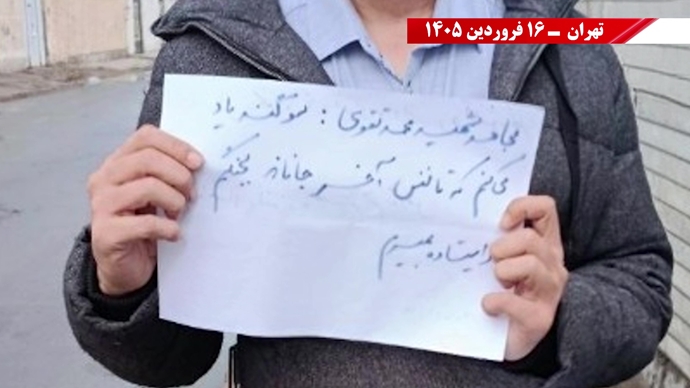 تهران ــ ۱۶ فروردین ۱۴۰۵
مجاهد شهید محمد تقوی : سوگند یاد
می‌کنم که تا نفس آخر جانانه بجنگم
و ایستاده بمیرم